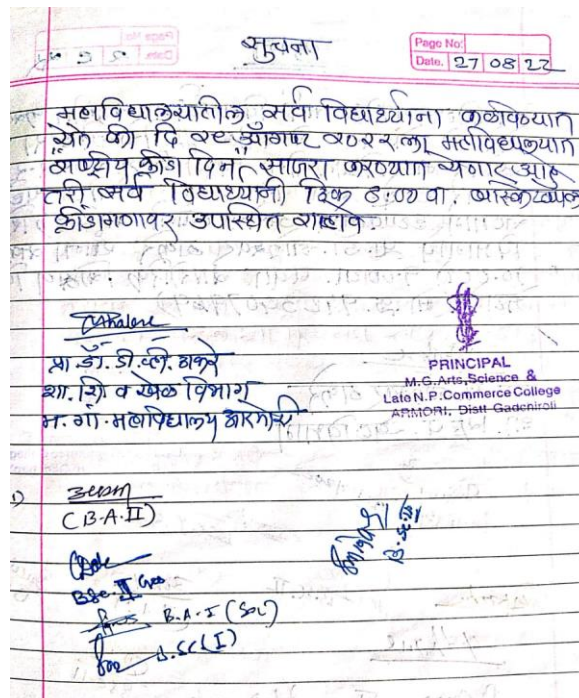 सुचना
Page No:
Date. 27 08 22
महाविद्यालयातील सर्व विद्यार्थ्यांना कळविण्यात
येते की दि २९ ऑगष्ट २०२२ ला महाविद्यालयात
राष्ट्रीय क्रीडा दिन साजरा करण्यात येणार आहे
तरी सर्व विद्यार्थ्यांनी ठिक ८:०० वा.
क्रीडांगणावर उपस्थित राहावे
प्रा. डॉ. डी. व्ही. ठाकरे
शा. शि. व खेळ विभाग
म. गां. महाविद्यालय आरमोरी
PRINCIPAL
M.G.Arts,Science &
Late N.P.Commerce College
ARMORI, Distt Gadchiroli
1)
(B.A.II)
BSc II
B.A-I (Sol)
B.SC(I)